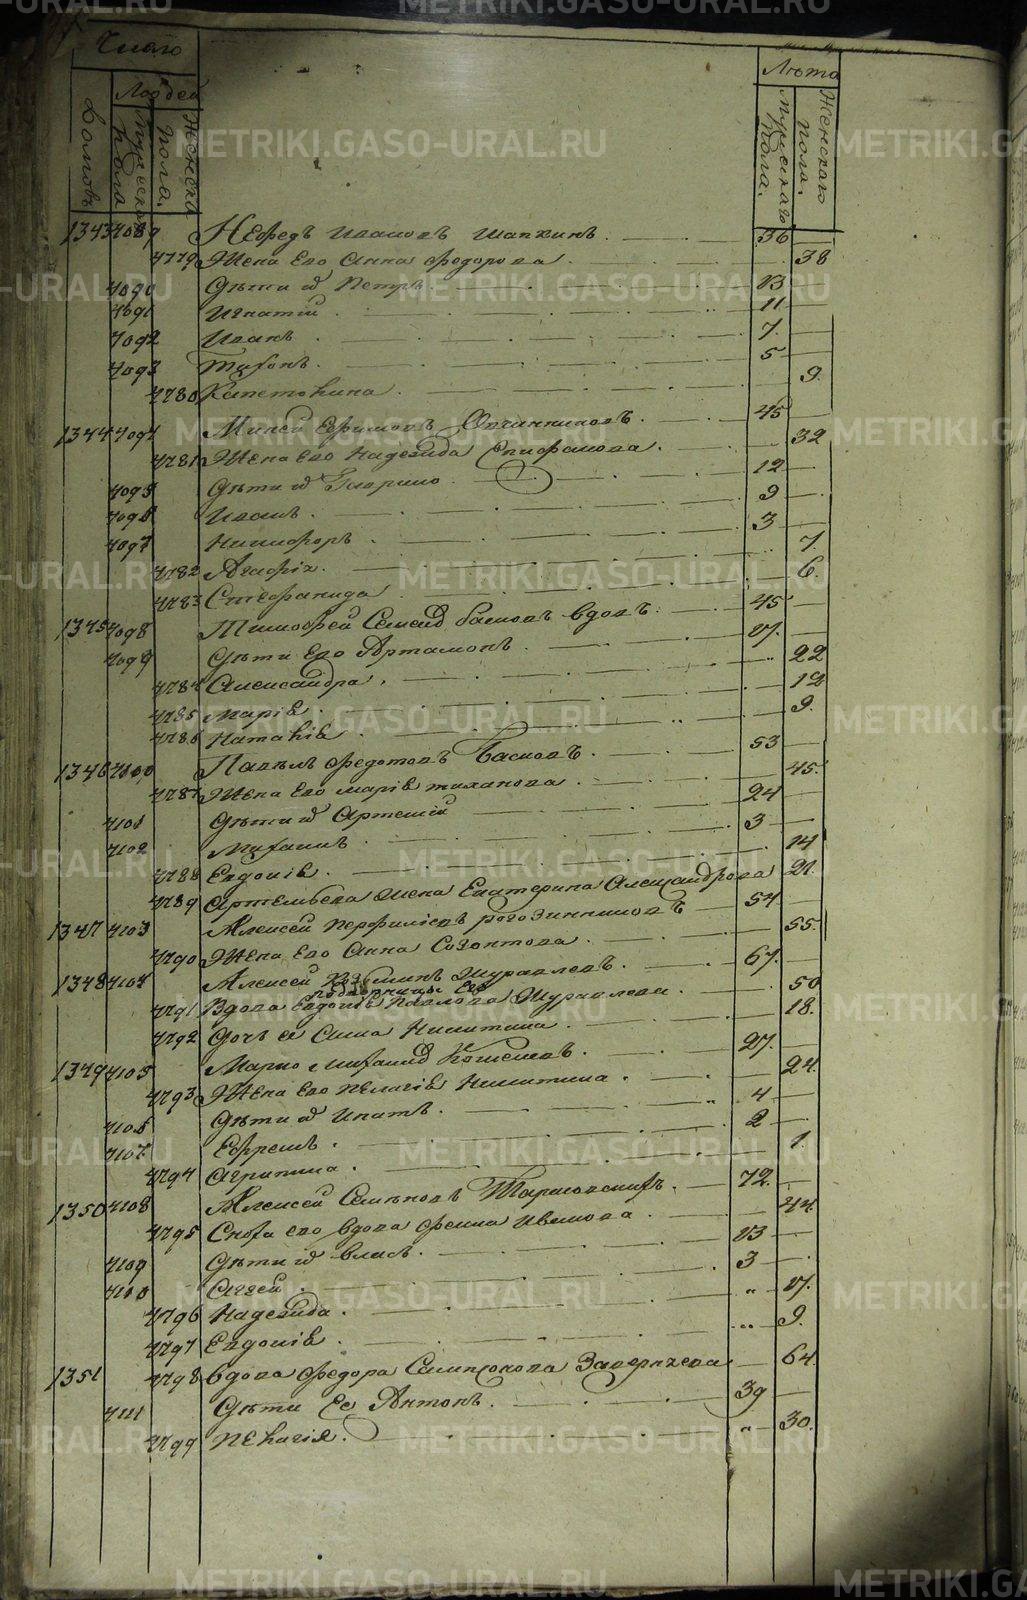 Число
Лѣта
Людей
Домовъ
Мужеска пола
Женска пола.
Мужскаго пола.
Женскаго пола.
1343 4089 Нефедъ Ивановъ Шапкинъ. 36
4779 Жена Ево Анна Федорова 38
4090 Дѣти их Петръ 13
4091 Игнатій 11
4092 Иванъ 7
4093 Тихонъ 5
4780 Капетолина 9
1344 4094 Ефимовъ Овчинниковъ 45
4781 Жена Ево Надежда Епифанова 32
4095 Дѣти их Гаврило 12
4096 Иванъ 9
4097 Никифоръ 3
4782 Агафія 7
4783 Стефанида 6
1345 4098 Тимофей Басковъ вдовъ 45
4099 Дѣти Ево Артамонъ 17
4784 Александра 22
4785 Марія 12
4786 Наталія 9
1346 4100 Павелъ Федотовъ Басковъ 53
4787 Жена Ево Марія Тиханова 45
4101 Дѣти их Артемій 24
4102 Михаилъ 3
4788 Евдокія 14
4789 Артемьева жена Екатерина Александрова 21
1347 4103 Алексей Перфильевъ Рогозинниковъ 54
4790 Жена Ево Анна Созонтова 55
1348 4104 Алексей Журавлевъ 67
Ево
4791 Вдова Евдокія Павлова Журавлева 50
4792 Дочь ея Анна Никитина 18
1349 4105 Марко 27
4793 Жена Ево Пелагія Никитина 24
4106 Дѣти их Ипатъ 4
4107 Ефремъ 2
4794 Агрипина 1
1350 4108 Алексей 72
4795 Сноха ево вдова Фекла Иванова 44
4109 Дѣти их Власъ 13
4110 Аггей 3
4796 Надежда 17
4797 Евдокія 9
1351 4798 Вдова Федора 64
4111 Дѣти Ее Антонъ 39
4799 Пелагія 30
METRIKI.GASO-URAL.RU